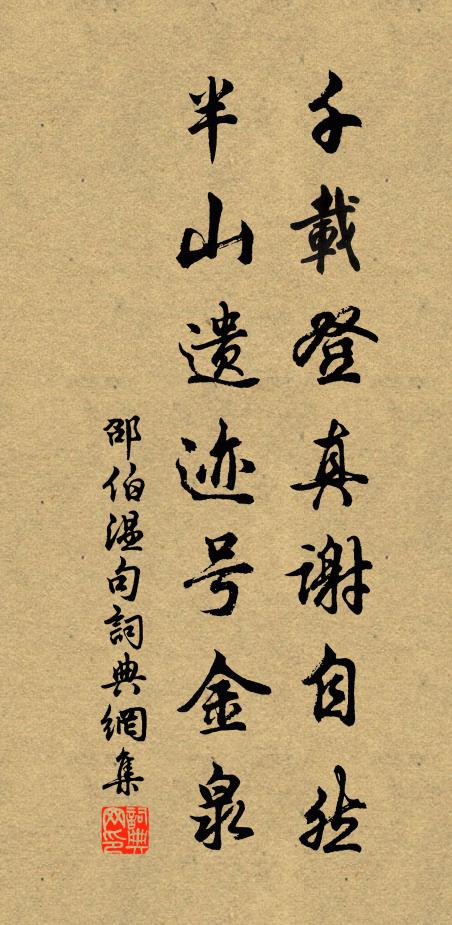 千載登真谢自然
半山遗迹号金泉
邵伯温句詞典網集
詞典网印